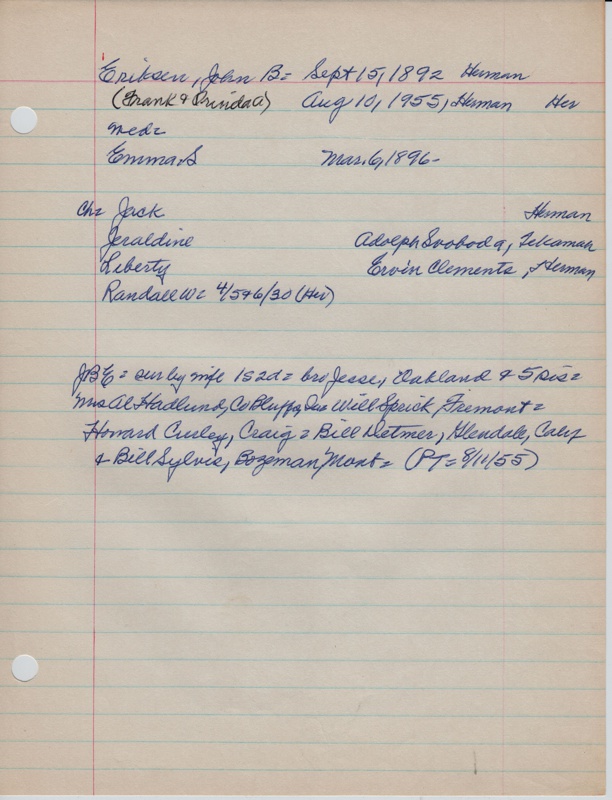 Eriksen, John B= Sept 15, 1892 Herman
(Frank & Prinda a) Aug 10, 1955, Herman Her
med=
Emma, S Mar. 6, 1896-
Ch= Jack Herman
Jeraldine Adolph Svoboda, Tekamah
Liberty Ervin Clements, Herman
Randall W= 4/5+6/30 (Her)
JBE= sur by wife 1s 2d= bro Jesse, Oakland & 5 sis=
Mrs Al Hadlund, Co Bluffs, Will Sprick, Fremont=
Howard Curley, Craig= Bill Detmer, Glendale, Calif
& Bill Sylvis, Bozeman, Mont= (PT=8/11/55)